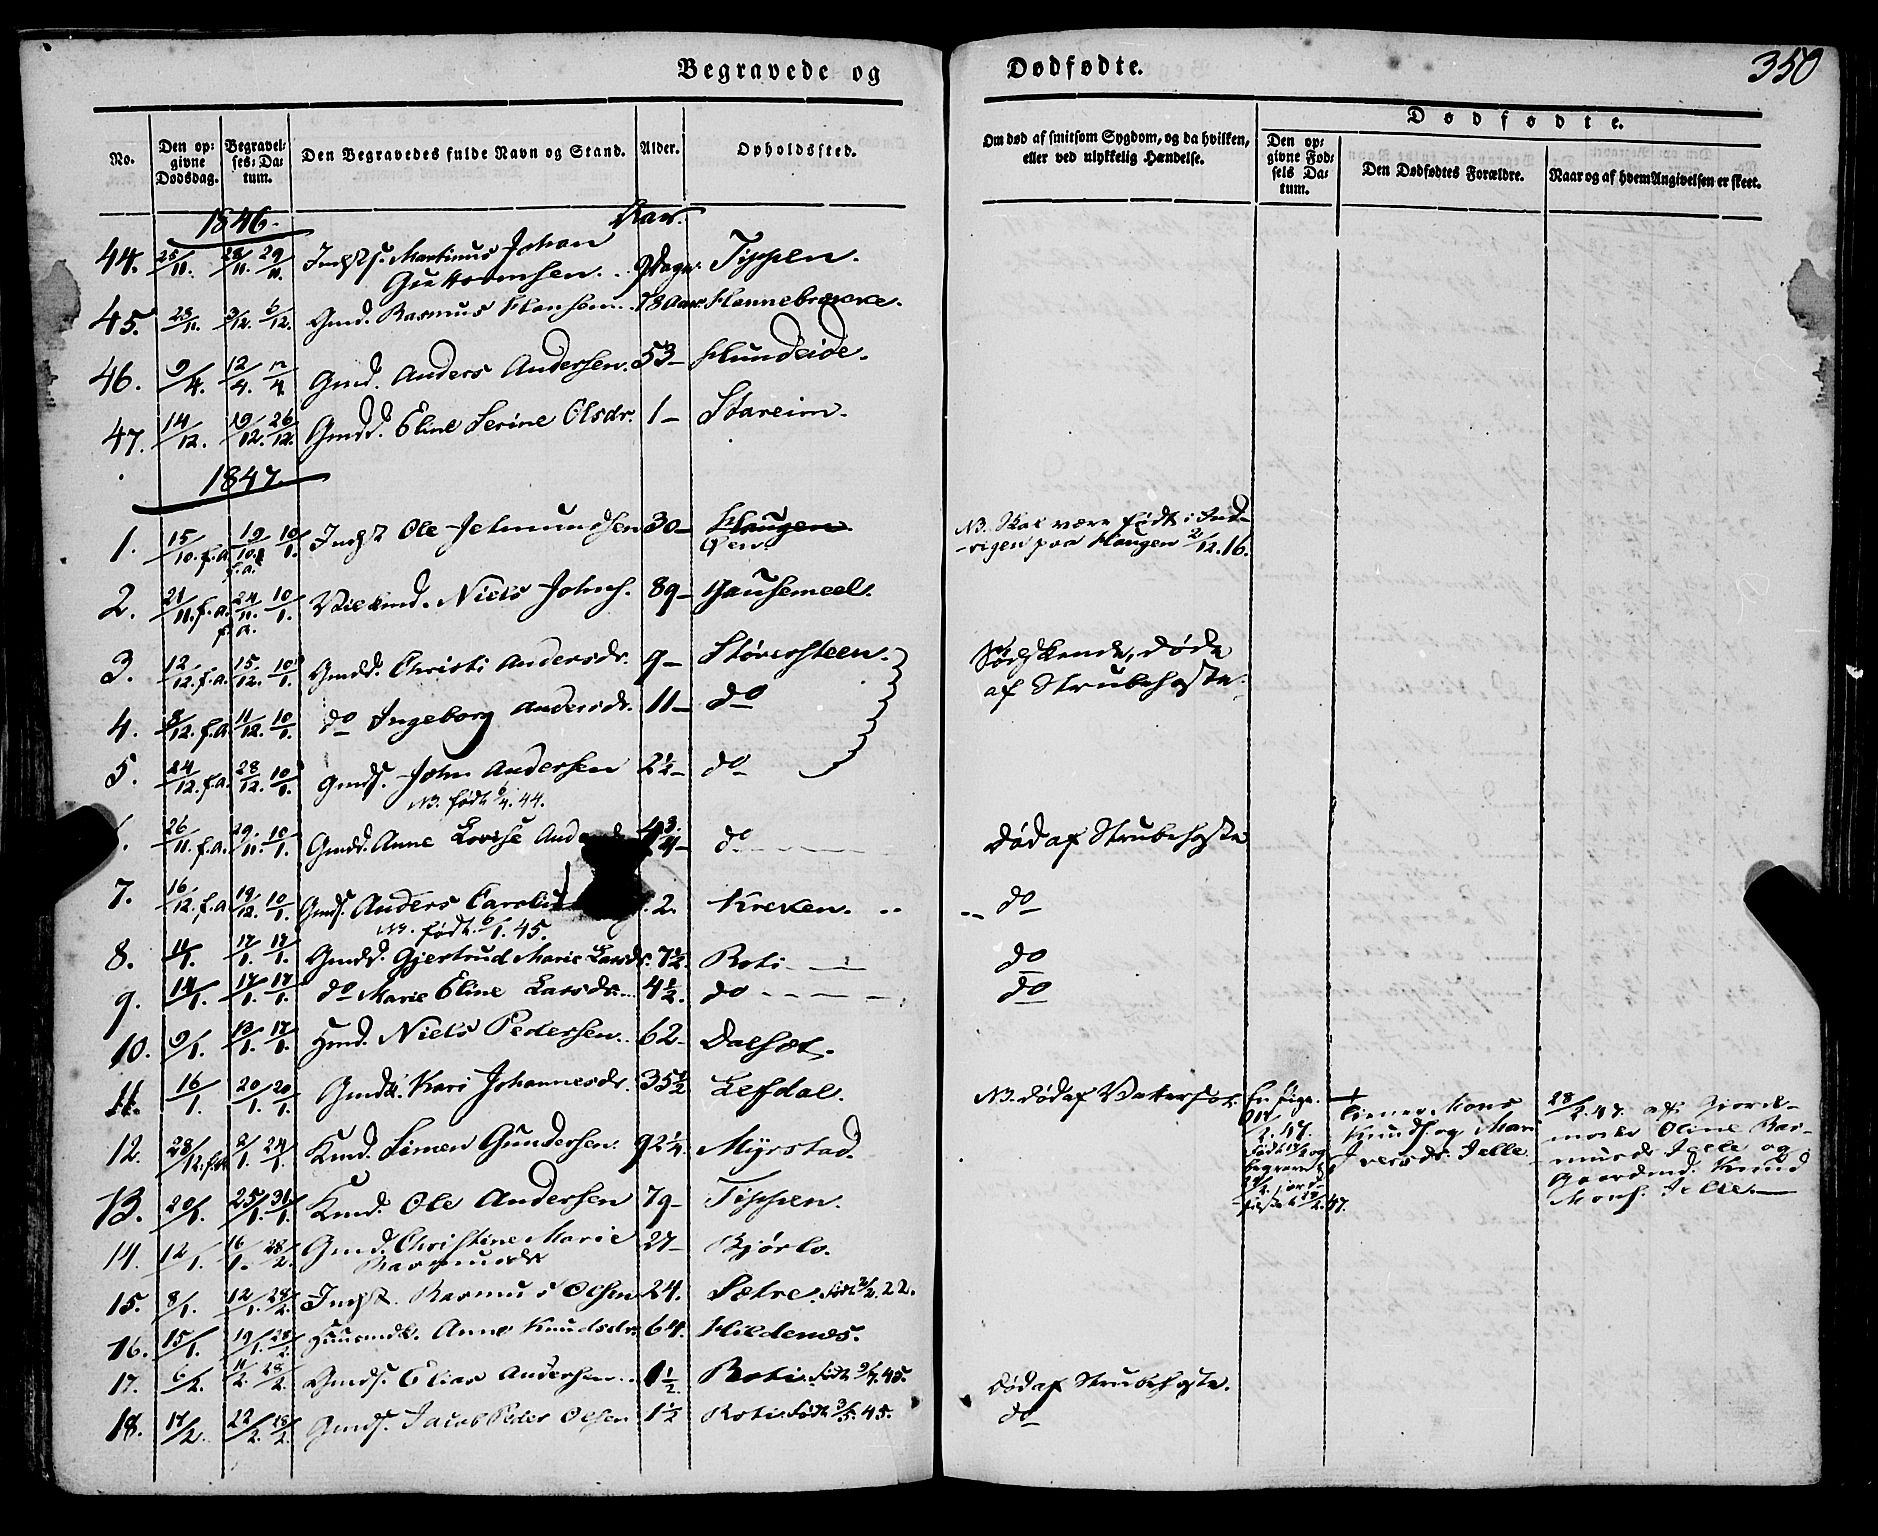 350
Begravede og Dødfødte.
No. Den opgivne Dødsdag. Begravelses-Datum. Den Begravedes fulde Navn og Stand. Alder. Opholdssted. Om død af smitsom Sygdom, og da hvilken, eller ved ulykkelig Hændelse. Dødfødte.
Den opgivne Fødsels Datum. Den Dødfødtes Forældre. Naar og af hvem Angivelsen er skeet.
1846. Aar.
44. 25/11. 28/11. 29/11. Indst. s. Martinus Johan
Guttormsen. 9 Dage. Tippen.
45. 28/11. 3/12. 6/12. Gmd. Rasmus Hansen 78 Aar. Hennebrække.
46. 9/4. 12/4. Gmd. Anders Andersen. 53 - Hundeide.
47. 14/12. 19/12. 26/12. Gmdd. Eline Serine Olsdr. 1 - Stareim.
1847.
1. 15/10. f.a. 19/10. f.a. 10/1. Indst Ole Jetmundsen 30 - Haugen NB. Skal være født i Ind-
Øen. -vigen paa Haugen 2/12. 16.
2. 21/11. f.a. 24/11. f.a. 10/1. Vilkmd. Niels Johns. 89 - Hausemeel.
3. 12/12. f.a. 15/12. 10/1. Gmdd. Christi Andersdr. 9 - Størersteen. Sødskende, døde
af Strubehoste.
4. 8/12. f.a. 11/12. 10/1. do Ingeborg Andersdr. 11 - do
5. 24/12. f.a. 28/12. 10/1. Gmds. John Andersen 2½ - do
NB. født 6/4. 44.
26/11. f.a. 29/11. 10/1. Gmdd. Anne Lovise And 4¾ - do Død af Strubehoste
7. 16/12. f.a. 19/12. 10/1. Gmds. Anders Carolus 2. Kreken. do
NB. født 6/1. 45.
8. 11/1. 17/1. 17/1. Gmdd. Gjertrud Marie Larsdr. 7½. Roti do
9. 14/1. 17/1. 17/1. do Marie Eline Larsdr. 4½. do do
10. 9/1. 13/1. 17/1. Hmd. Niels Pedersen. 62 - Dalsæt.
11. 16/1. 20/1. 20/1. Gmdk. Kari Johannesdr. 35½ Lefdal. NB. død af Vattersot. En Pige.
12. 28/12. f.a. 2/1. 24/1. Kmd. Simen Gundersen. 92¼ Myrstad.
Tiener Mons
Knuds. og Mari
Iversdr. Jelle
28/2. 47. af Gjord-
moder Oline Ras-
musdr Jelle og
Gaardmd. Knud
Mons. Jelle.
13. 20/1. 25/1. 31/1. Kmd. Ole Andersen 79 - Tippen.
14. 12/1. 16/1. 28/2. Gmd. Christine Marie
Rasmusdr 27 - Bjørlo.
15. 8/1. 12/1. 28/2. Indst. Rasmus Olsen 24. Sætre. født 2/2. 22.
16. 15/1. 19/1. 28/2. Huusmdk. Anne Knudsdr. 64. Hildenæs.
17. 6/2. 11/2. 28/2. Gmds. Elias Andersen 1½. Roti. født 9/7. 45. Død af Strubehoste.
18. 17/2. 22/2. 28/2. Gmds. Jacob Peder Olsen 1½ Roti. født 9/5. 45. do